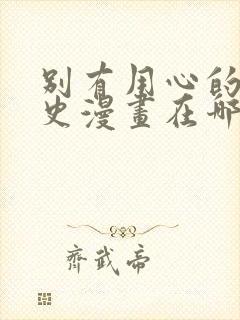 别有用心的
史漫畫在哪
齊武帝